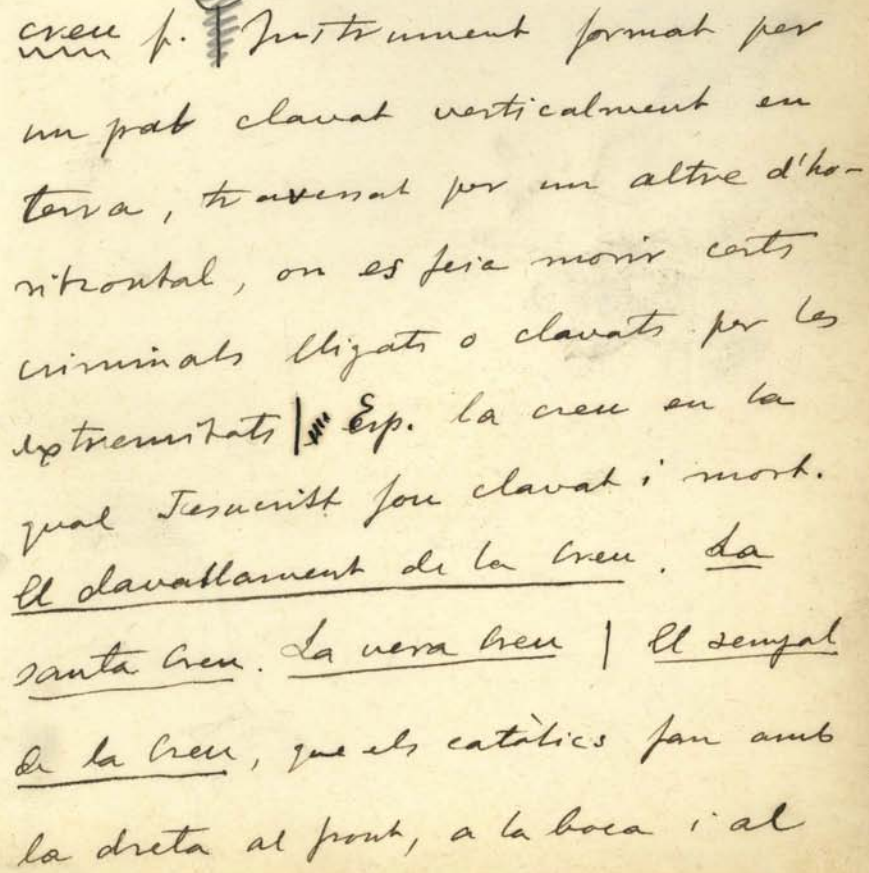 creu f. | Instrument format per
un pal clavat verticalment en
terra, travessat per un altre d'ho-
ritzontal, on es feia morir certs
criminals lligats o clavats per les
extremitats | Esp. la creu en la
qual Jesucrist fou clavat i mort.
El davallament de la Creu. La
santa Creu. La vera Creu | El senyal
de la Creu, que els catòlics fan amb
la dreta al front, a la boca i al